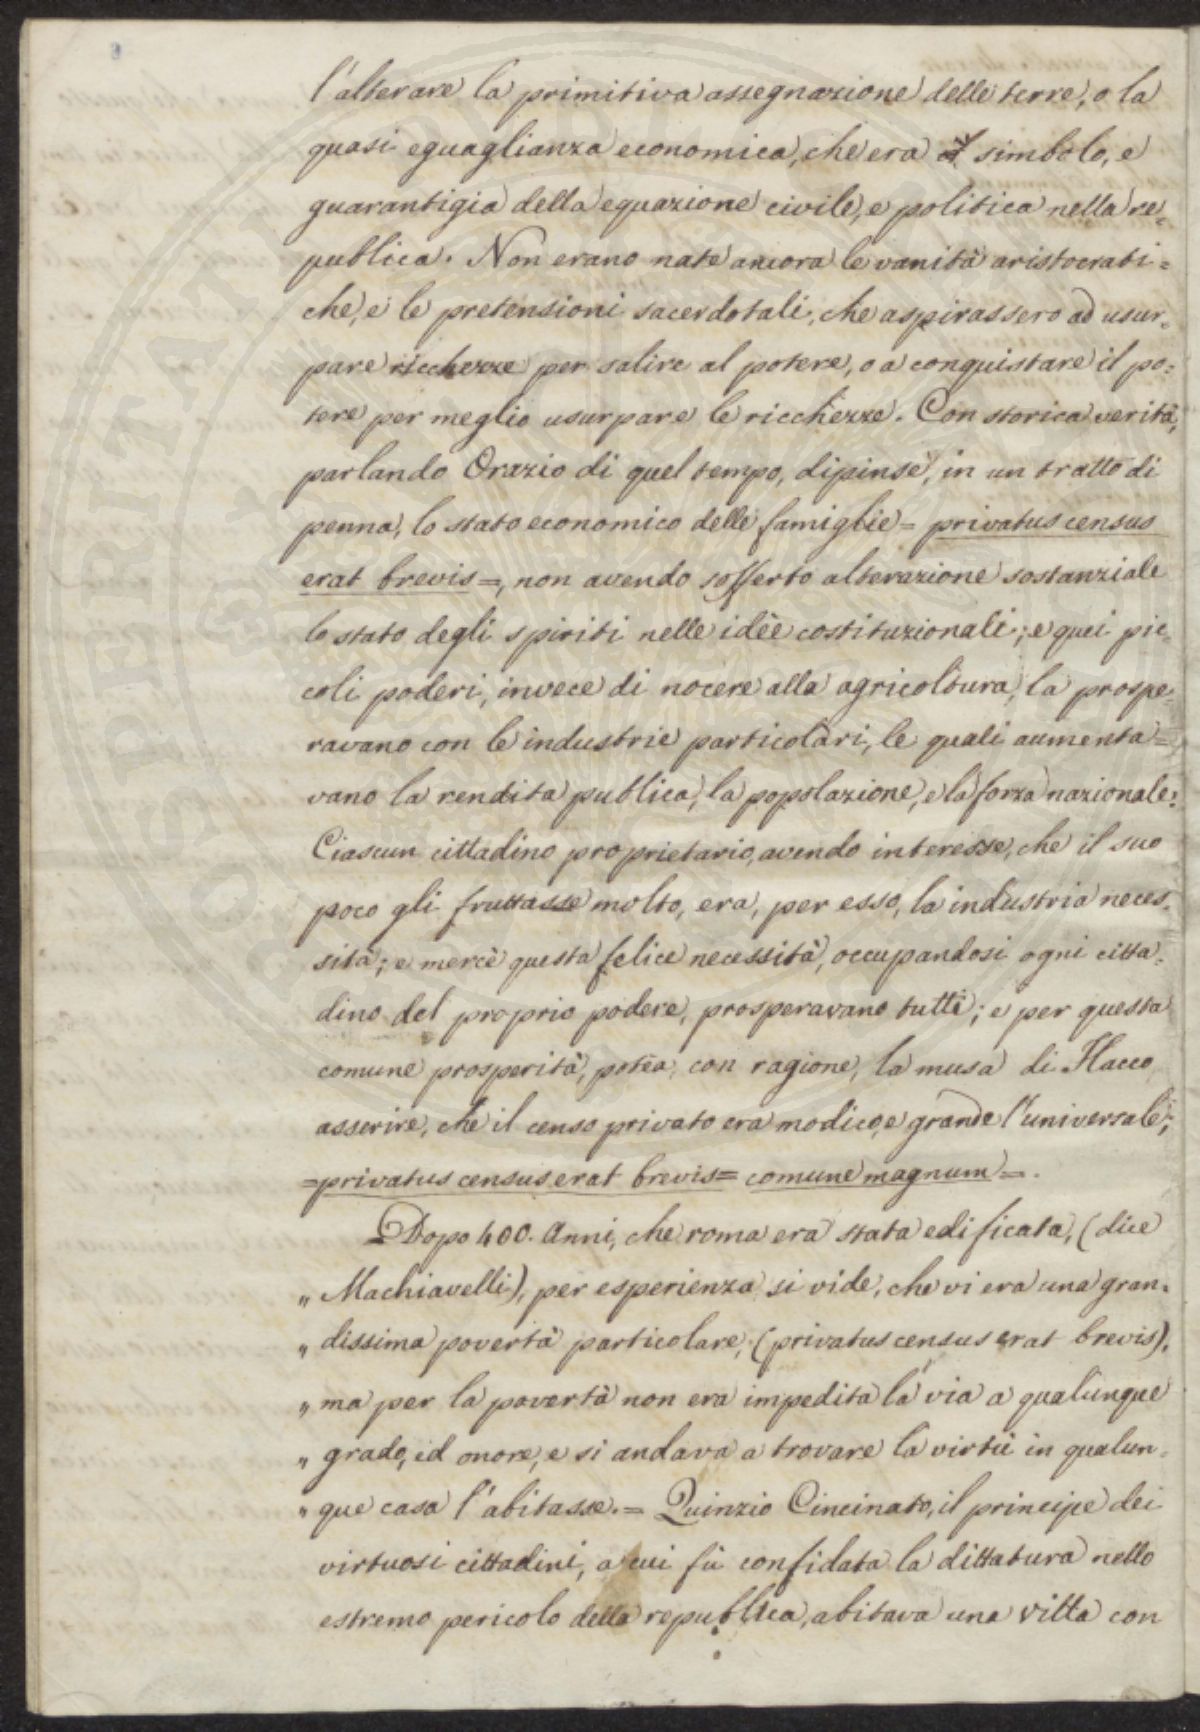 l'alterare la primitiva assegnazione delle terre, o la
quasi eguaglianza economica, che era simbolo, e
guarantigia della equazione civile, e politica nella re=
publica. Non erano nate ancora le vanità aristocrati=
che, e le pretensioni sacerdotali, che aspirassero ad usur=
pare ricchezze per salire al potere, o a conquistare il po=
tere per meglio usurpare le ricchezze. Con storica verità,
parlando Orazio di quel tempo, dipinse, in un tratto di
penna, lo stato economico delle famiglie = privatus census
erat brevis =, non avendo sofferto alterazione sostanziale
lo stato degli spiriti nelle idee costituzionali; e quei pic=
coli poderi, invece di nocere alla agricoltura, la prospe=
ravano con le industrie particolari, le quali aumenta=
vano la rendita publica, la popolazione, e la forza nazionale.
Ciascun cittadino proprietario, avendo interesse, che il suo
poco gli fruttasse molto, era, per esso, la industria neces=
sità; e mercè questa felice necessità, occupandosi ogni citta=
dino del proprio podere, prosperavano tutti; e per questa
comune prosperità, potea, con ragione, la musa di Flacco
asserire, che il censo privato era modico, e grande l'universale;
=privatus census erat brevis= comune magnum=.
Dopo 400. anni, che roma era stata edificata, (dice
„ Machiavelli), per esperienza si vide, che vi era una gran=
„ dissima povertà particolare, (privatus census erat brevis),
„ ma per la povertà non era impedita la via a qualunque
„ grado, ed onore, e si andava a trovare la virtù in qualun=
„ que casa l'abitasse. = Quinzio Cincinato, il principe dei
virtuosi cittadini, a cui fù confidata la dittatura nello
estremo pericolo della republica, abitava una villa con
SPERITATI